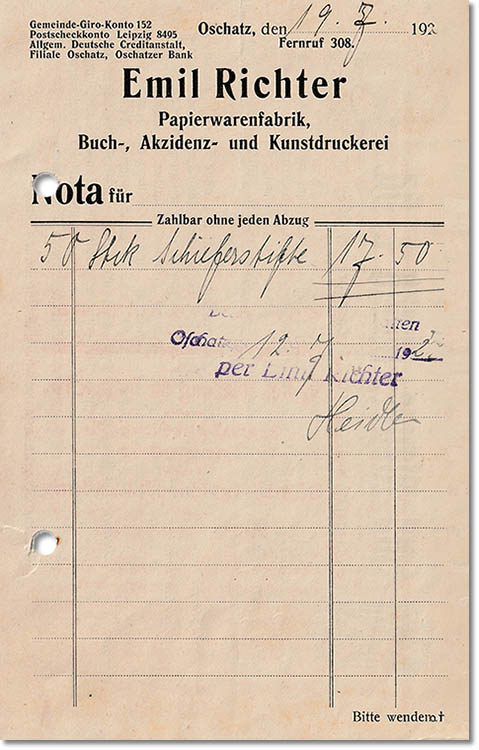 Gemeinde-Giro-Konto 152
Postscheckkonto Leipzig 8495
Allgem. Deutsche Creditanstalt,
Filiale Oschatz, Oschatzer Bank
Oschatz, den 19. 7. 192
Fernruf 308.
Emil Richter
Papierwarenfabrik,
Buch-, Akzidenz- und Kunstdruckerei
Nota für
Zahlbar ohne jeden Abzug
50 Stck Schieferstifte 17. 50
Oschatz 12. 7 192
per Emil Richter
Heidler
Bitte wenden!